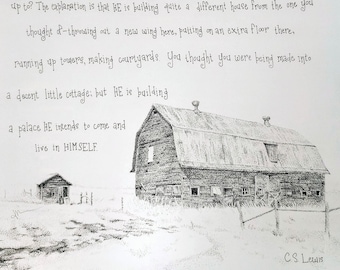 up to? The explanation is that HE is building quite a different house from the one you
thought of-throwing out a new wing here, putting on an extra floor there,
running up towers, making courtyards You thought you were being made into
a decent little cottage; but HE is building
a palace HE intends to come and
live in HIMSELF
C.S. Lewis